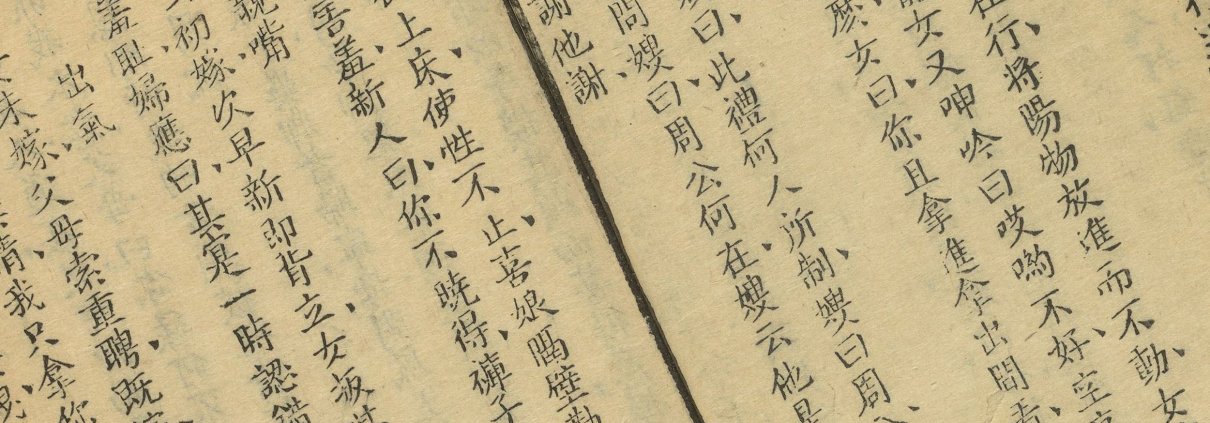 在行、將陽物放進而不動、女
女又呻吟曰哎喲不好、空
麽、女曰、你且拿進拿出間
曰、此禮何人所制、嫂曰周
問嫂曰、周公何在、嫂云他是
謝他謝
上床、使性不止、喜娘隔壁勸
害羞、新人曰、你不曉得、褲子
親嘴
初嫁、次早新即背立、女扳其
羞恥、婦應曰、其寔一時認錯
出氣
未嫁、父母索重聘、既
情、我只拿你